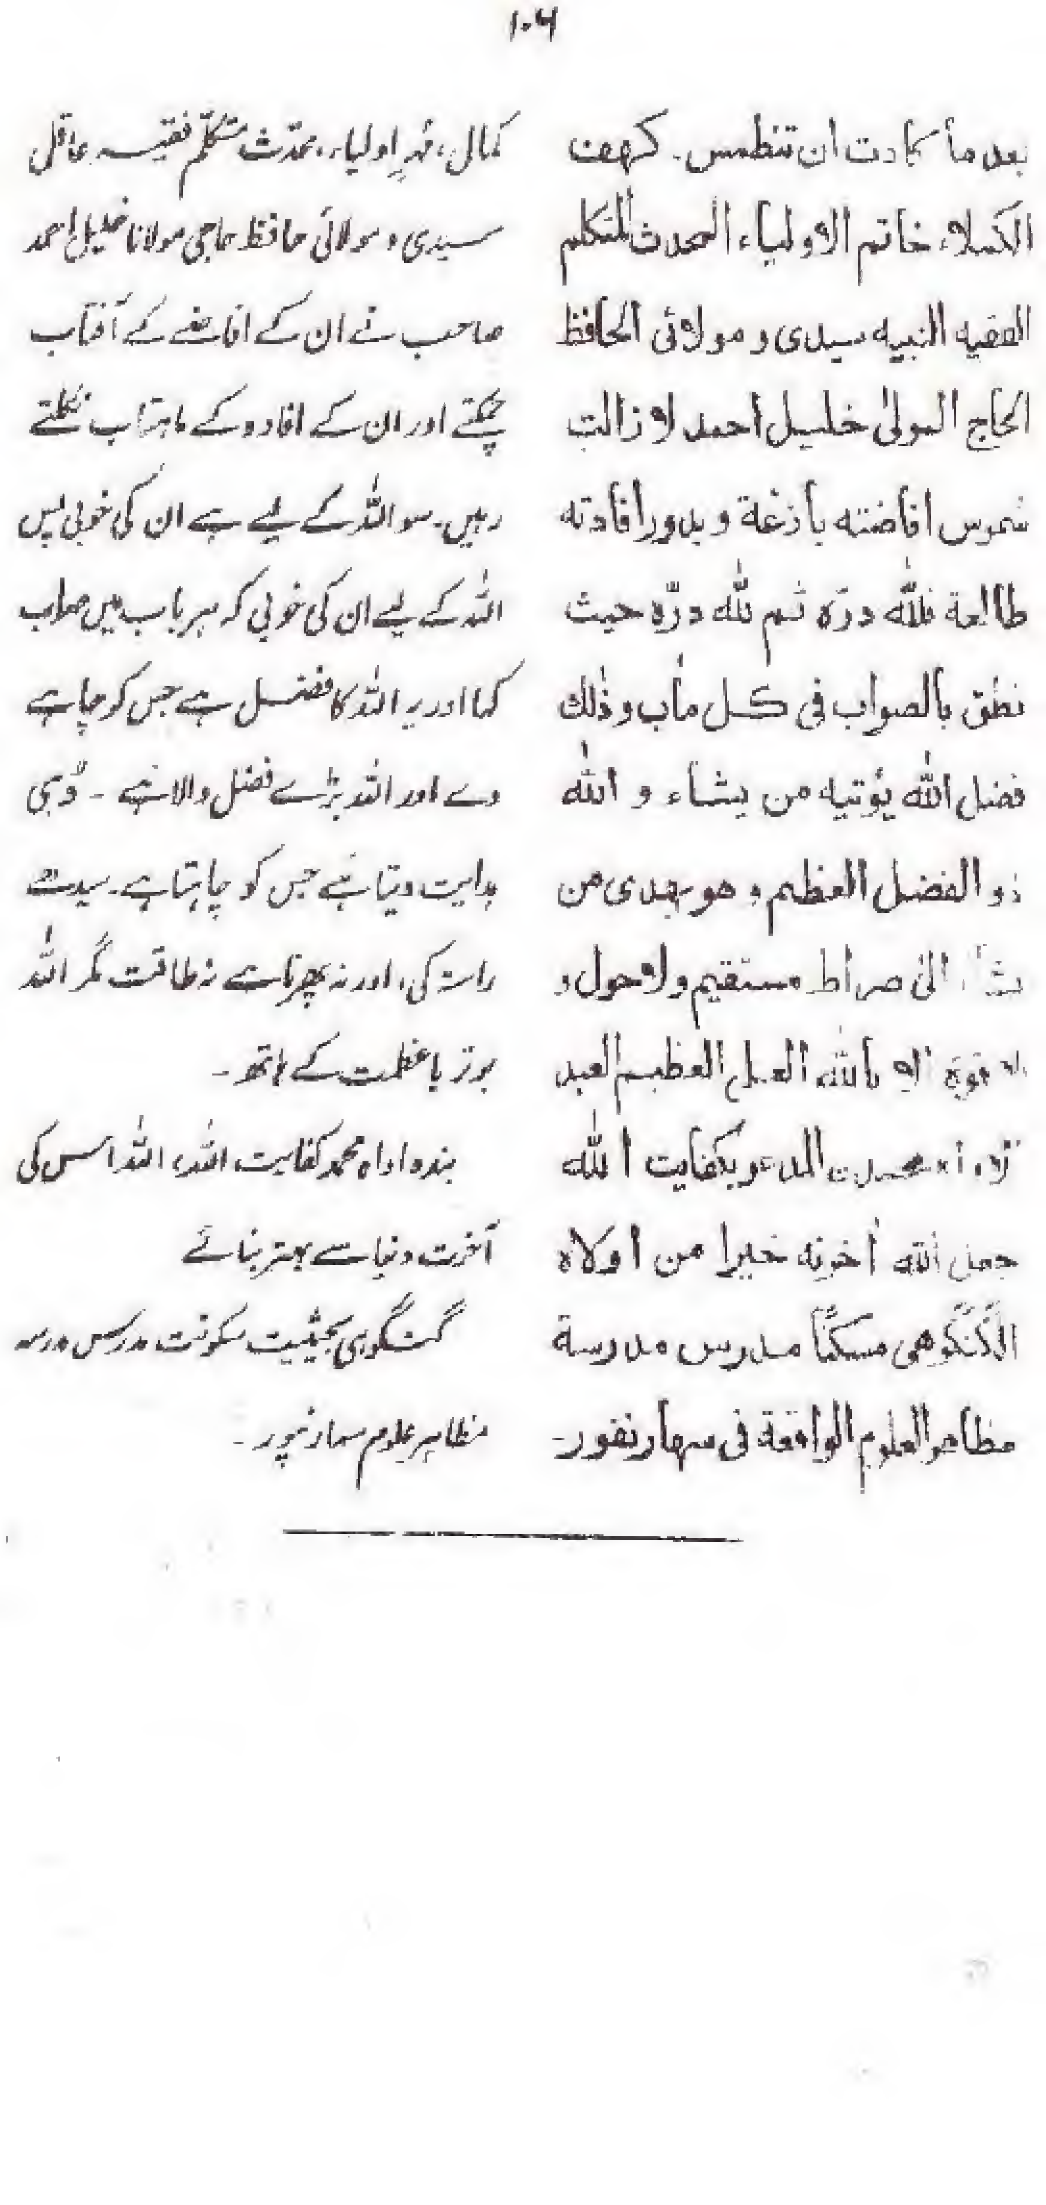 ۱۰۶
بعد ما كادت ان تنطمس۔ كهف
الكملاء خاتم الاولياء المحدث المتكلم
الفقيه النبيه سيدى و مولائى الحافظ
الحاج المولىٰ خليل احمد لا زالت
شموس افاضته بازغة و بدور افادته
طالعة فللّٰه درّه ثم للّٰه درّه حيث
نطق بالصواب فى كل مأب و ذٰلك
فضل اللّٰه يؤتيه من يشاء و اللّٰه
ذو الفضل العظيم و هو يهدى من
يشاء الىٰ صراط مستقيم ولا حول و
لا قوة الا باللّٰه العلى العظيم العبد
محمد المدعو بكفايت اللّٰه
جعل اللّٰه اُخرته خيرا من اولاه
الگنگوهى مسكنًا مدرس مدرسة
مظاهر العلوم الواقعة فى سهارنفور۔
کمال، مُہرِ اولیاء، محدّث متکلّم فقیہ عاقل
سیدی و مولائی حافظ حاجی مولانا خلیل احمد
صاحب نے ان کے افاضے کے آفتاب
چمکتے اور ان کے افادہ کے ماہتاب نکلتے
رہیں۔ سو اللّٰہ کے لیے ہے ان کی خوبی پس
اللّٰہ کے لیے ان کی خوبی کہ ہر باب میں صواب
کہا اور یہ اللّٰہ کا فضل ہے جس کو چاہے
دے اور اللّٰہ بڑے فضل والا ہے ۔ وُہی
ہدایت دیتا ہے جس کو چاہتا ہے۔ سیدھے
راستہ کی، اور نہ پھرنا ہے نہ طاقت مگر اللّٰہ
برتر باعظمت کے ہاتھ ۔
بندہ اواہ محمد کفایت اللّٰہ، اللّٰہ اس کی
آخرت دنیا سے بہتر بنائے
گنگوہی بحیثیت سکونت مدرس مدرسہ
مظاہر علوم سہارنپور ۔